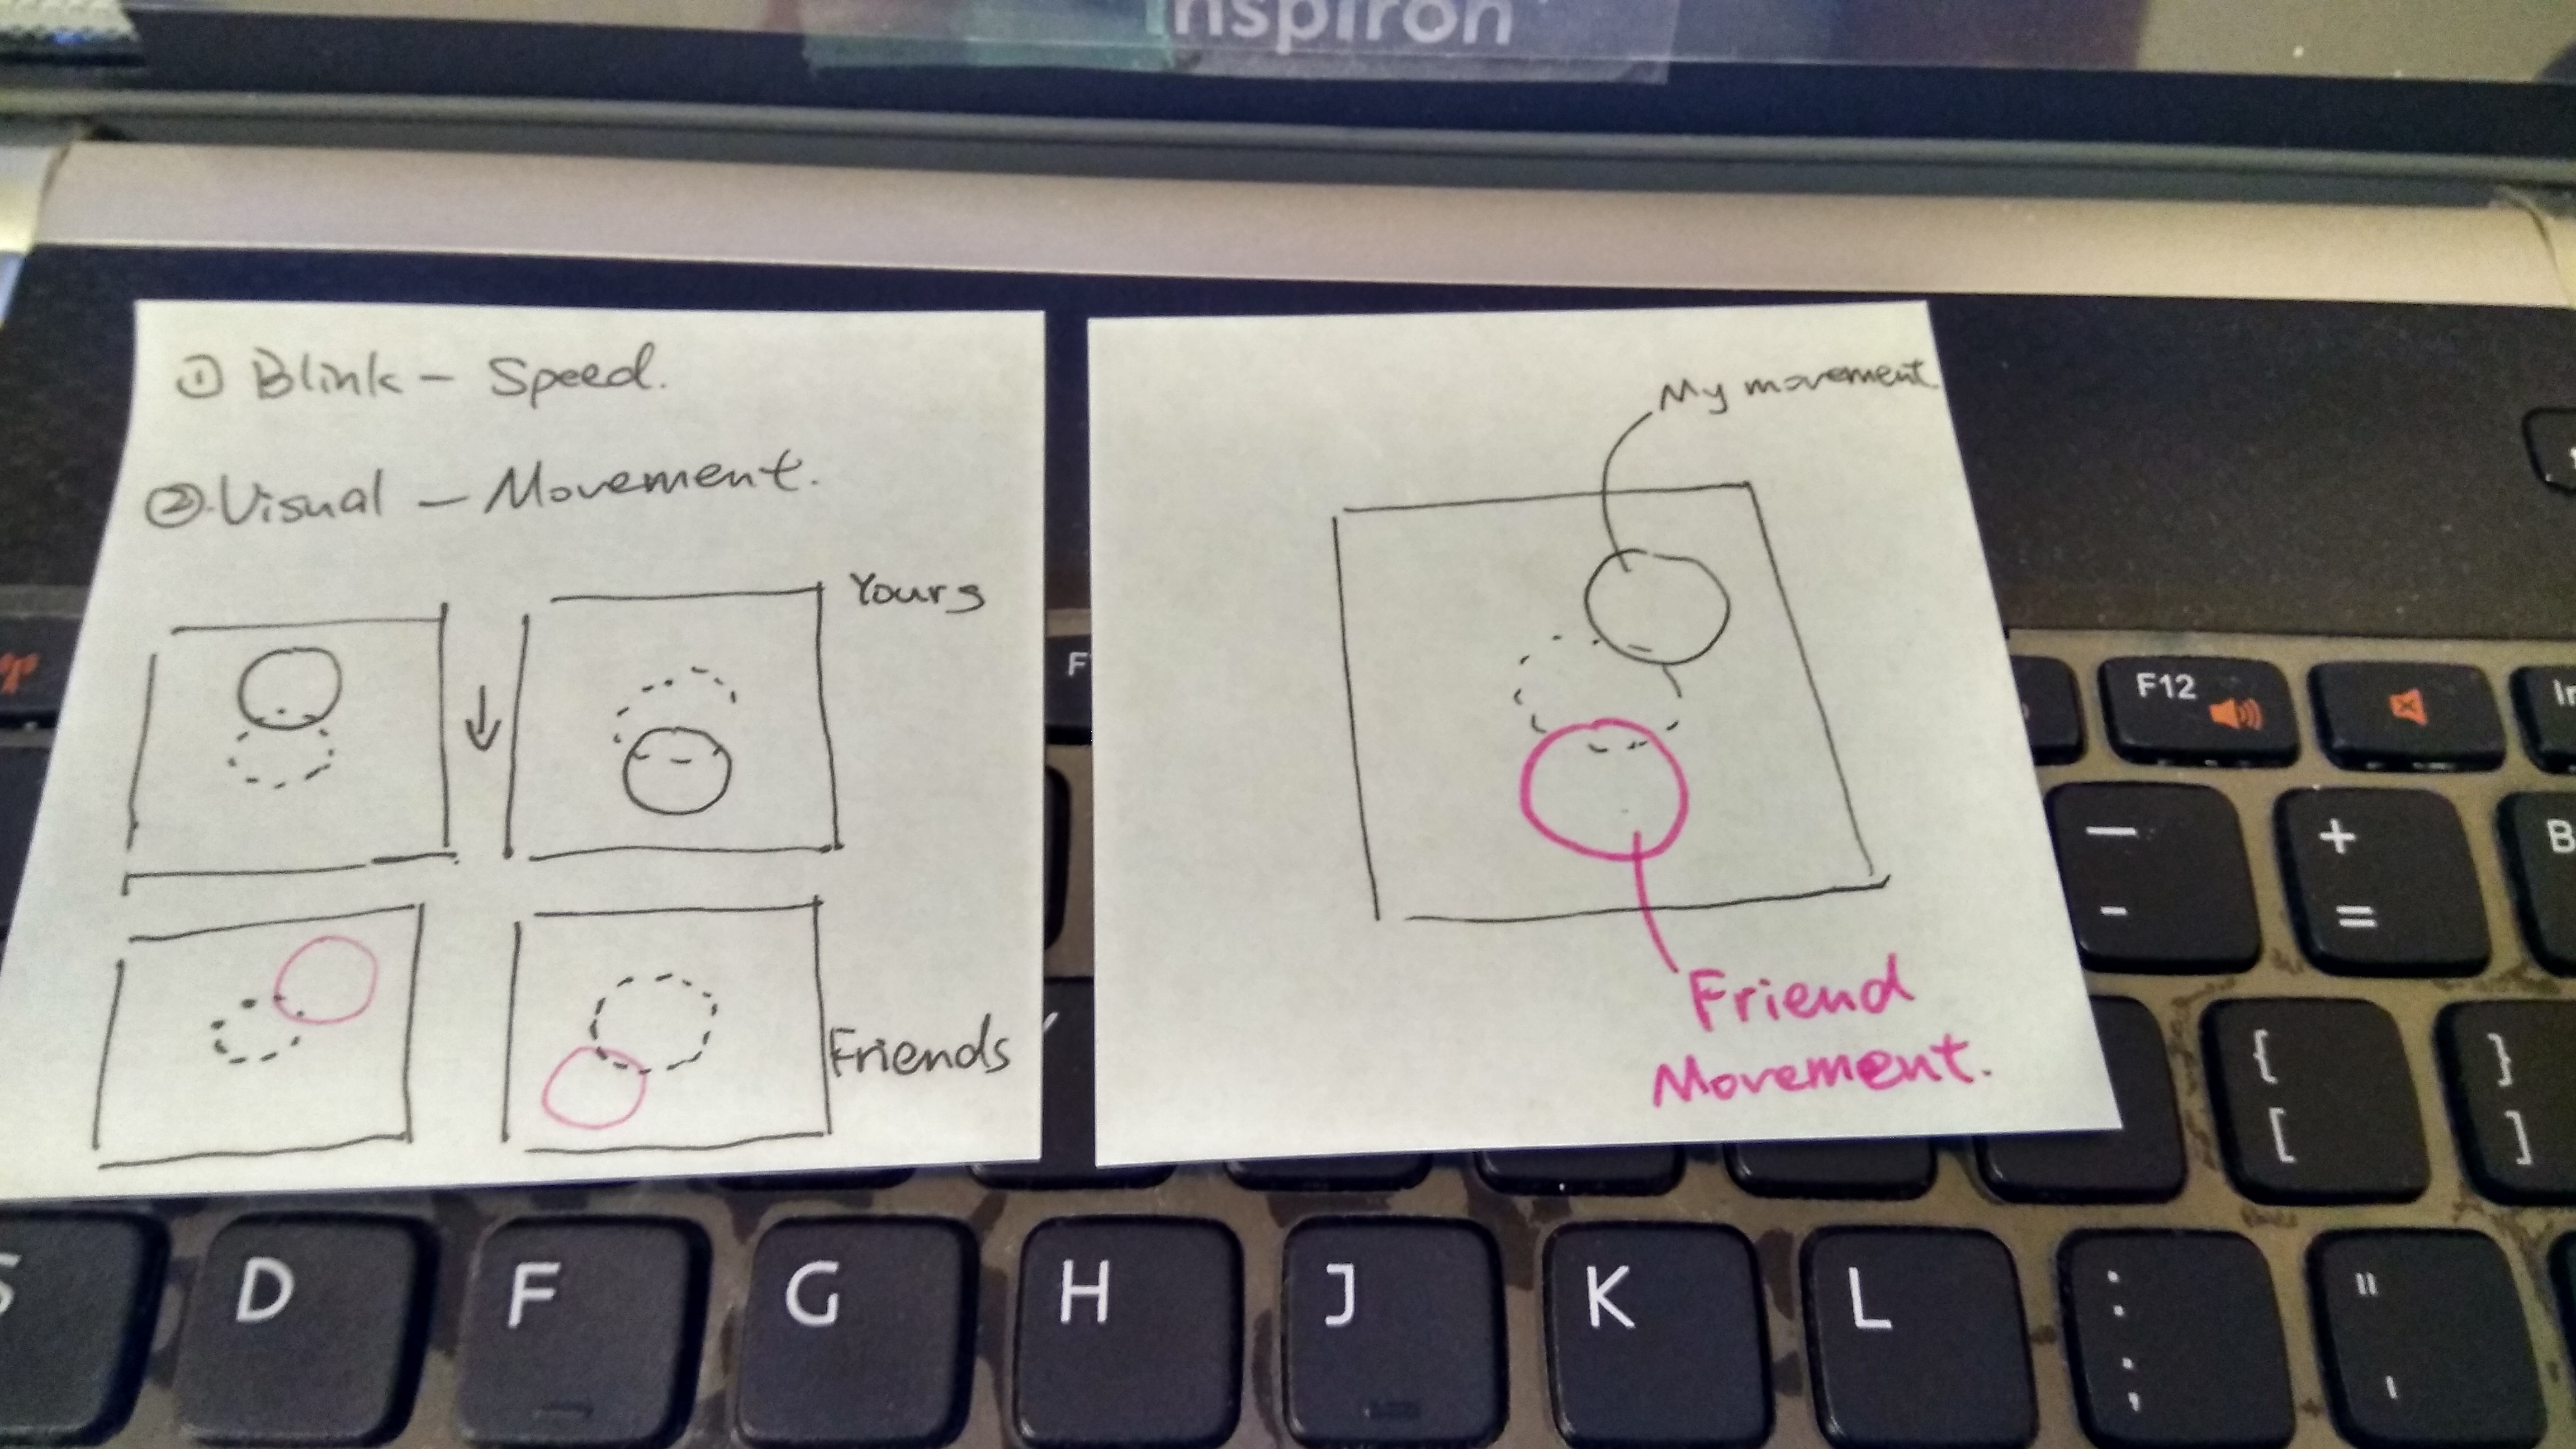 nspiron
① Blink - Speed.
② Visual - Movement.
Yours
Friends
My movement
Friend
Movement.
F12
—
-
+
=
{
[
}
]
D
F
G
H
J
K
L
:
;
"
'